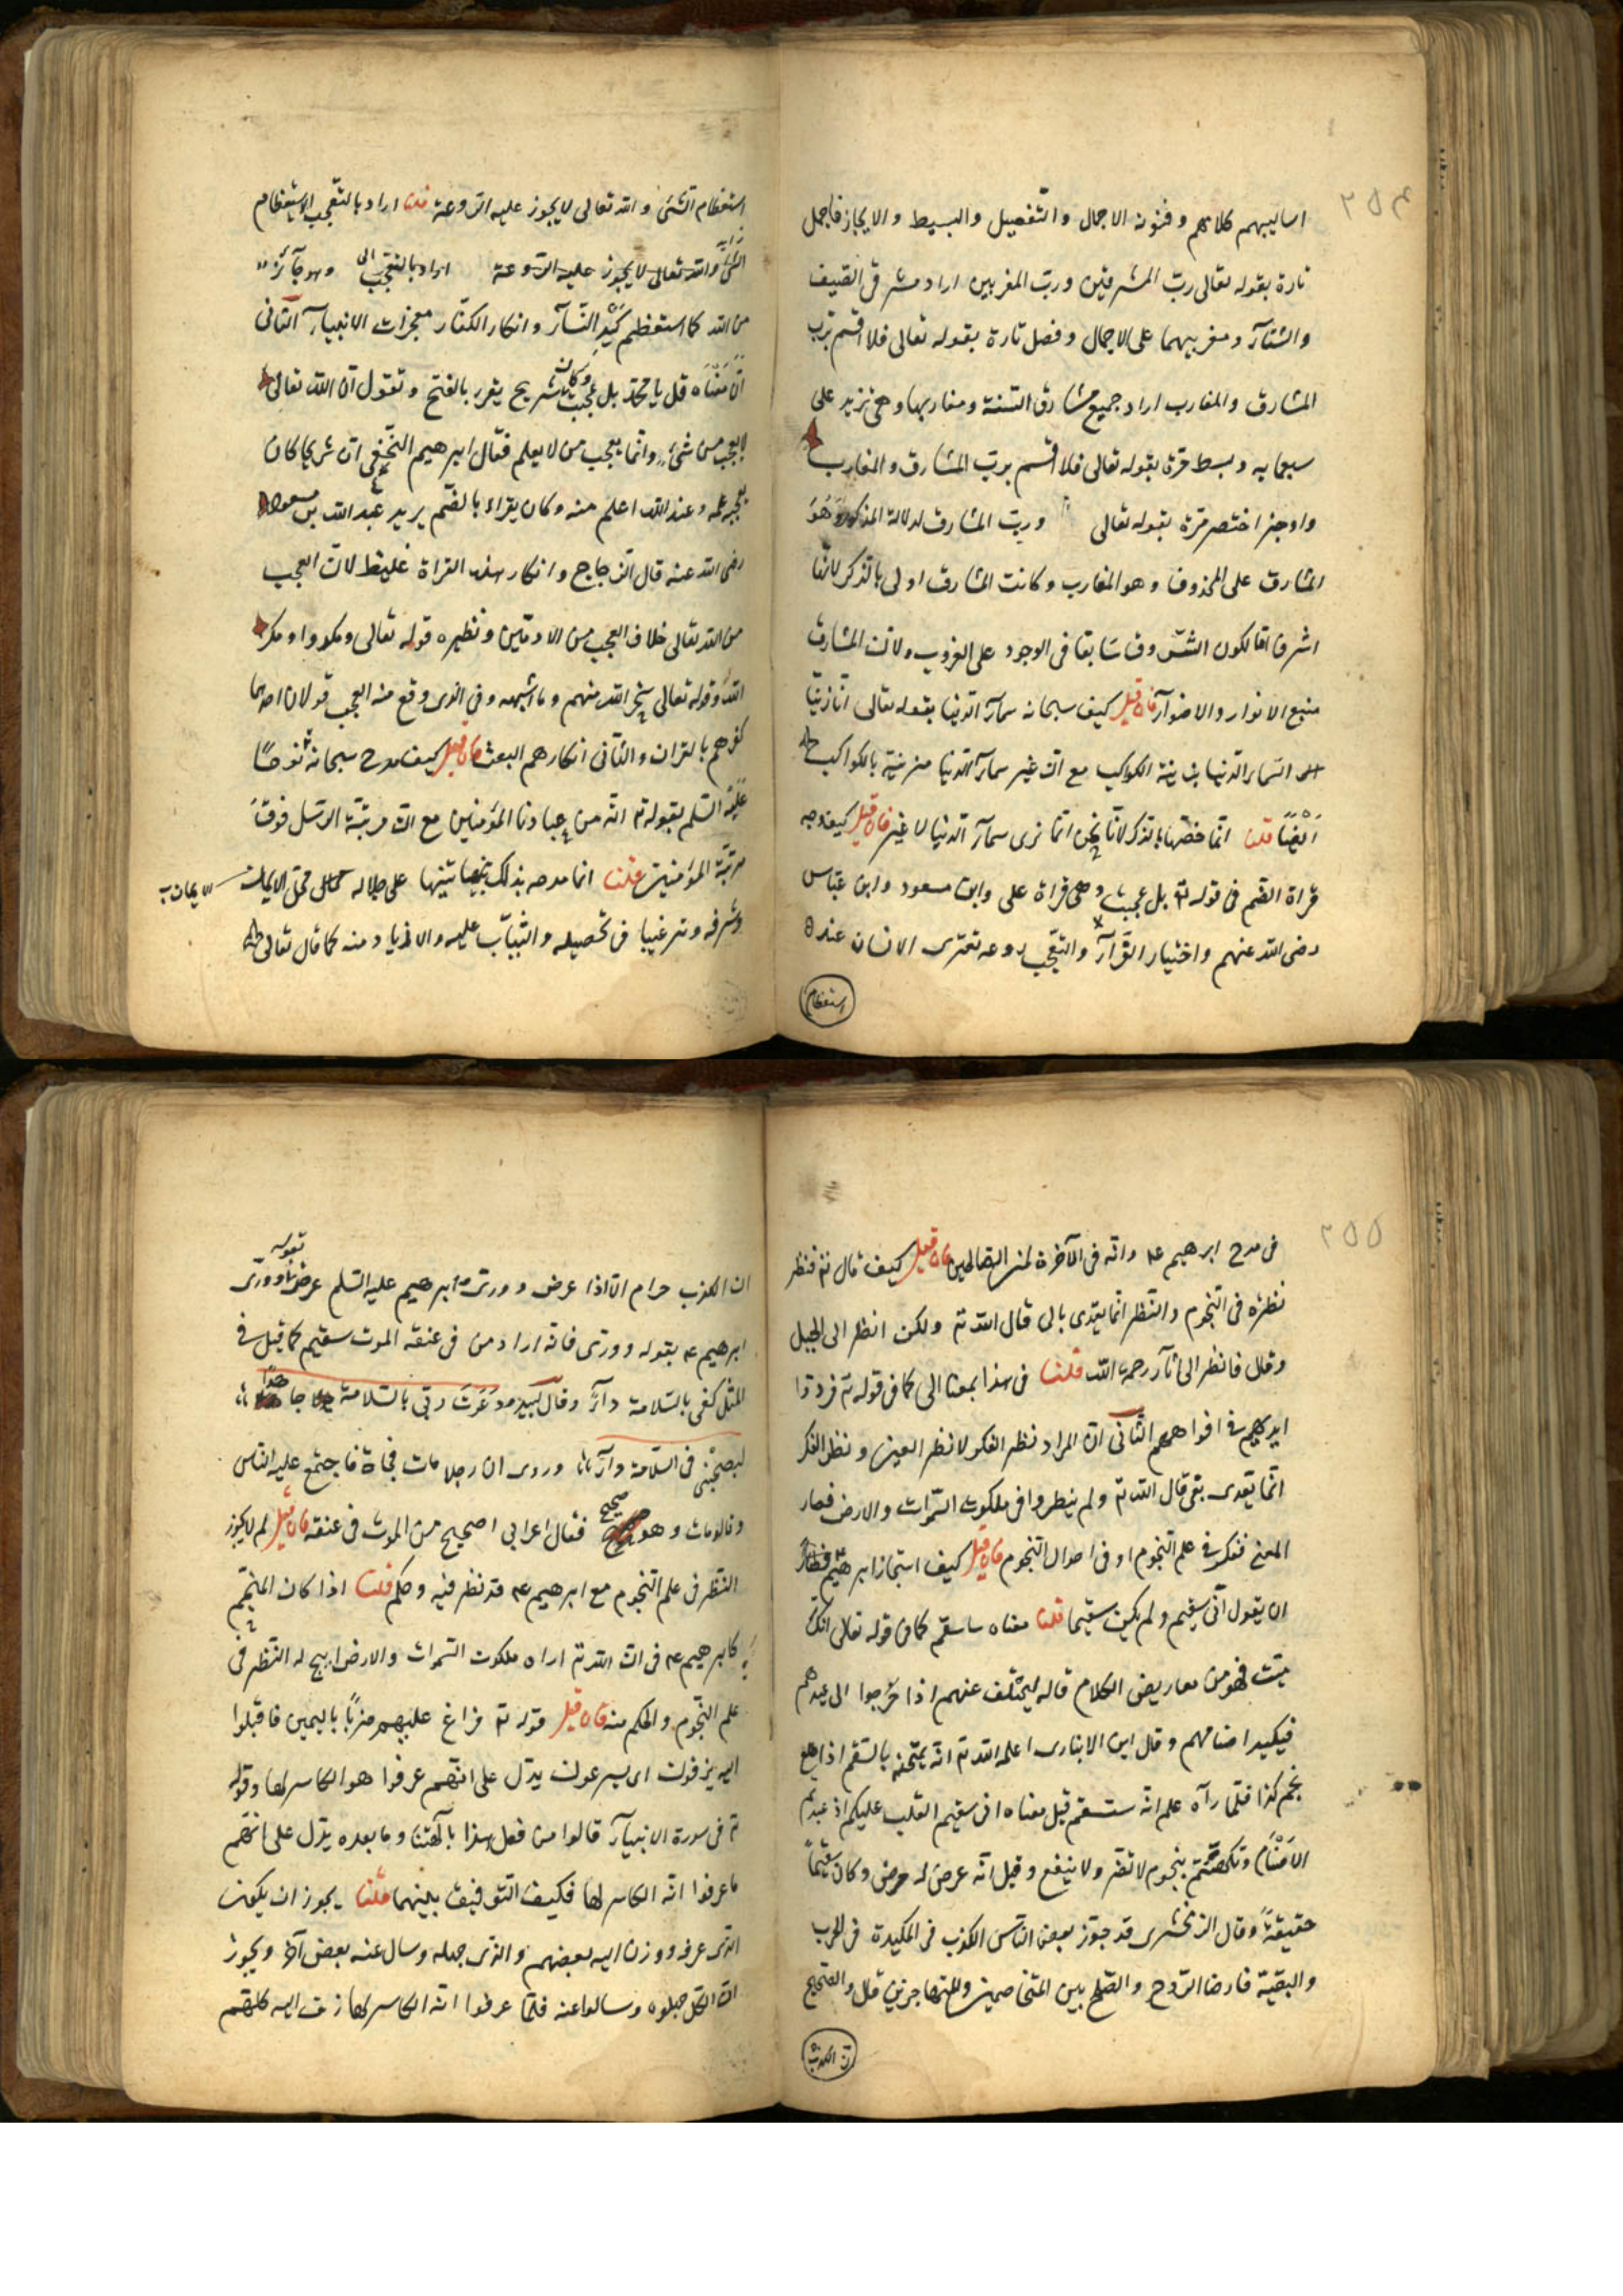 ٢٥٤
اساليبهم كلامهم و فنونه الاجمال والتفصيل والبسيط والايجاز فاجمل
تارة بقوله تعالى ربّ المشرقين وربّ المغربين اراد مشرقى الصيف
والشتآء ومغربيهما على الاجمال وفصل تارة بقوله تعالى فلا اقسم بربّ
المشارق والمغارب اراد جميع مشارق السنة ومغاربها وهى تزيد على
سبعمايه وبسط مرّة بقوله تعالى فلا اقسم بربّ المشارق والمغارب
واوجز اختصر مرّة بقوله تعالى وربّ المشارق لدلالة المذكور وَهُوَ
المشارق على المحذوف وهو المغارب وكانت المشارق اولى بالذكر لانّها
اشرف امّا لكون الشروق سَابقا فى الوجود على الغروب ولانّ المشارق
منبع الانوار والاضوآء فان قيل كيف سبحانه سمآء الدنيا بقوله تعالى انّا زيّنّا
السماء الدنيا بزينة الكواكب مع انّ غير سمآء الدنيا مزينة بالكواكب
اَيْضًا قلنا انّما خصّها بالذكر لانّا نحن انّما نرى سمآء الدنيا لا غير فان قيل كيف وجه
قراة الضم فى قوله تع بل عجبت وهى قراة على وابن مسعود وابن عبّاس
رضى الله عنهم واختيار الفرّآء والتعجّب روعه تعترى الانسان عند
استعظام
استعظام الشئ والله تعالى لا يجوز عليه الروعة قلنا اراد بالتعجب الاستعظام
الشئ والله تعالى لا يجوز عليه الروعة اراد بالتعجب وهو جآئز
من الله كما استعظم كَيْدِ النسآء وانكار الكفّار معجزات الانبيآء الثانى
انّ مَعْنَاه قل يا محمّد بل عجبت وكان شريح يقرء بالفتح وتقول انّ الله تعالى
لا يعجب من شئ وانّما يعجب من لا يعلم فقال ابرهيم النّخعى انّ شريحا كان
يعجبه علمه وعبد الله اعلم منه وكان يقراء بالضّم يريد عبد الله بن مسعود
رضى الله عنه قال الزجاج وانكار هذه القراة غليظ لانّ العجب
من الله تعالى خلاف العجب من الادميّين ونظيره قوله تعالى ومكروا ومكر
الله وقوله تعالى سخر الله منهم وما اشبهه وفى الذى وقع منه العجب قولان احدهما
كفرهم بالقران والثانى انكارهم البعث فان قيل كيف مدح سبحانه نوحًا
عليه السلم بقوله تع انّه من عبادنا المؤمنين مع انّ مرتبة الرسل فوق
مرتبة المؤمنين قلنا انما مدحه بذلك تنبيها على جلاله محلّ الايمان الايمان ب
وشرفه وترغيبا فى تحصيله والثبات عليه والازدياد منه كما قال تعالى
٢٥٥
فى مدح ابرهيم ع م وانّه فى الآخرة لمن الصالحين فان قيل كيف قال تع فنظر
نظرة فى النجوم والنظر انّما يتعدى بالى قال الله تع ولكن انظر الى الجبل
وقال فانظر الى اثآر رحمة الله قلنا فى هذا بمعنا الى كما فى قوله تع فردّوا
ايديهم فى افواههم الثّانى انّ المراد نظر الفكر لا نظر العين ونظر الفكر
انّما يتعدى بفى قال الله تع ولم ينظروا فى ملكوت السموات والارض فصار
المعنى ففكر فى علم النجوم او فى احوال النجوم فان قيل كيف استجاز ابرهيم
ان يقول انّى سقيم ولم يكن سقيما قلنا معناه ساسقم كما فى قوله تعالى انّك
ميّت فهو من معاريض الكلام قاله ليتخلف عنهم اذا خرجوا الى عيدهم
فيكيد اصنامهم وقال ابن الانبارى اعلمه الله تع انّه يمتحنه بالسقم اذا طلع
نجم كذا فلمّا رآه علم انّه سيسقم قيل معناه انّى سقيم القلب عليكم اذ عبدتم
الاصْنَام وتكهنتم بنجوم لا تضر ولا ينفع وقيل انّه عرض له مرض وكان سقيمًا
حقيقةً وقال الزمخشرى قد جوّز بعض الناس الكذب فى المكيدة فى الحرب
والبقيّة فارضا الزوج والصّلح بين المتخاصمين والمتهاجرين قال والصحيح
انّ الكذب
ان الكذب حرام الّا اذا عرض وورى وابرهيم عليه السلم عرض بقوله وورّى
ابرهيم ع م بقوله وورى فانّه اراد من فى عنقه الموت سقيم كما قيل فى
المثل كفى بالسّلامة دآءً وقال لبيد ودَعَوتُ ربّى بالسّلامة جاهدًا
ليصحّنى فى السّلامة دآء وروى ان رجلا مات فجاة فاجتمع عليه النّاس
وقالو مات وهو صحيح فقال اعرابى اصحيح من الموت فى عنقه فان قيل لم لا يجوز
النظر فى علم النجوم مع ابرهيم ع م قد نظر فيه وحكم قلنا اذا كان المنجّم
كابرهيم ع م فى انّ الله تع اراه ملكوت السموات والارض ابيح له النّظر فى
علم النّجوم والحكم منه فان قيل قوله تع فراغ عليهم ضربًا باليمين فاقبلوا
اليه يزفون اى يسرعون يدّل على انّهم عرفوا هو الكاسر لها وقوله
تع فى سورة الانبيآء قالوا من فعل هذا بآلهتنا وما بعده يدّل على انّهم
ما عرفوا انّه الكاسر لها فكيف التوفيق بينهما قلنا يجوز ان يكون
الذى عرفه وزفّ اليه بعضهم والذى جهله وسال عنه بعض آخر ويجوز
انّ الكلّ جهلوه وسالوا عنه فلمّا عرفوا انّه الكاسر لها زف اليه كلّهم